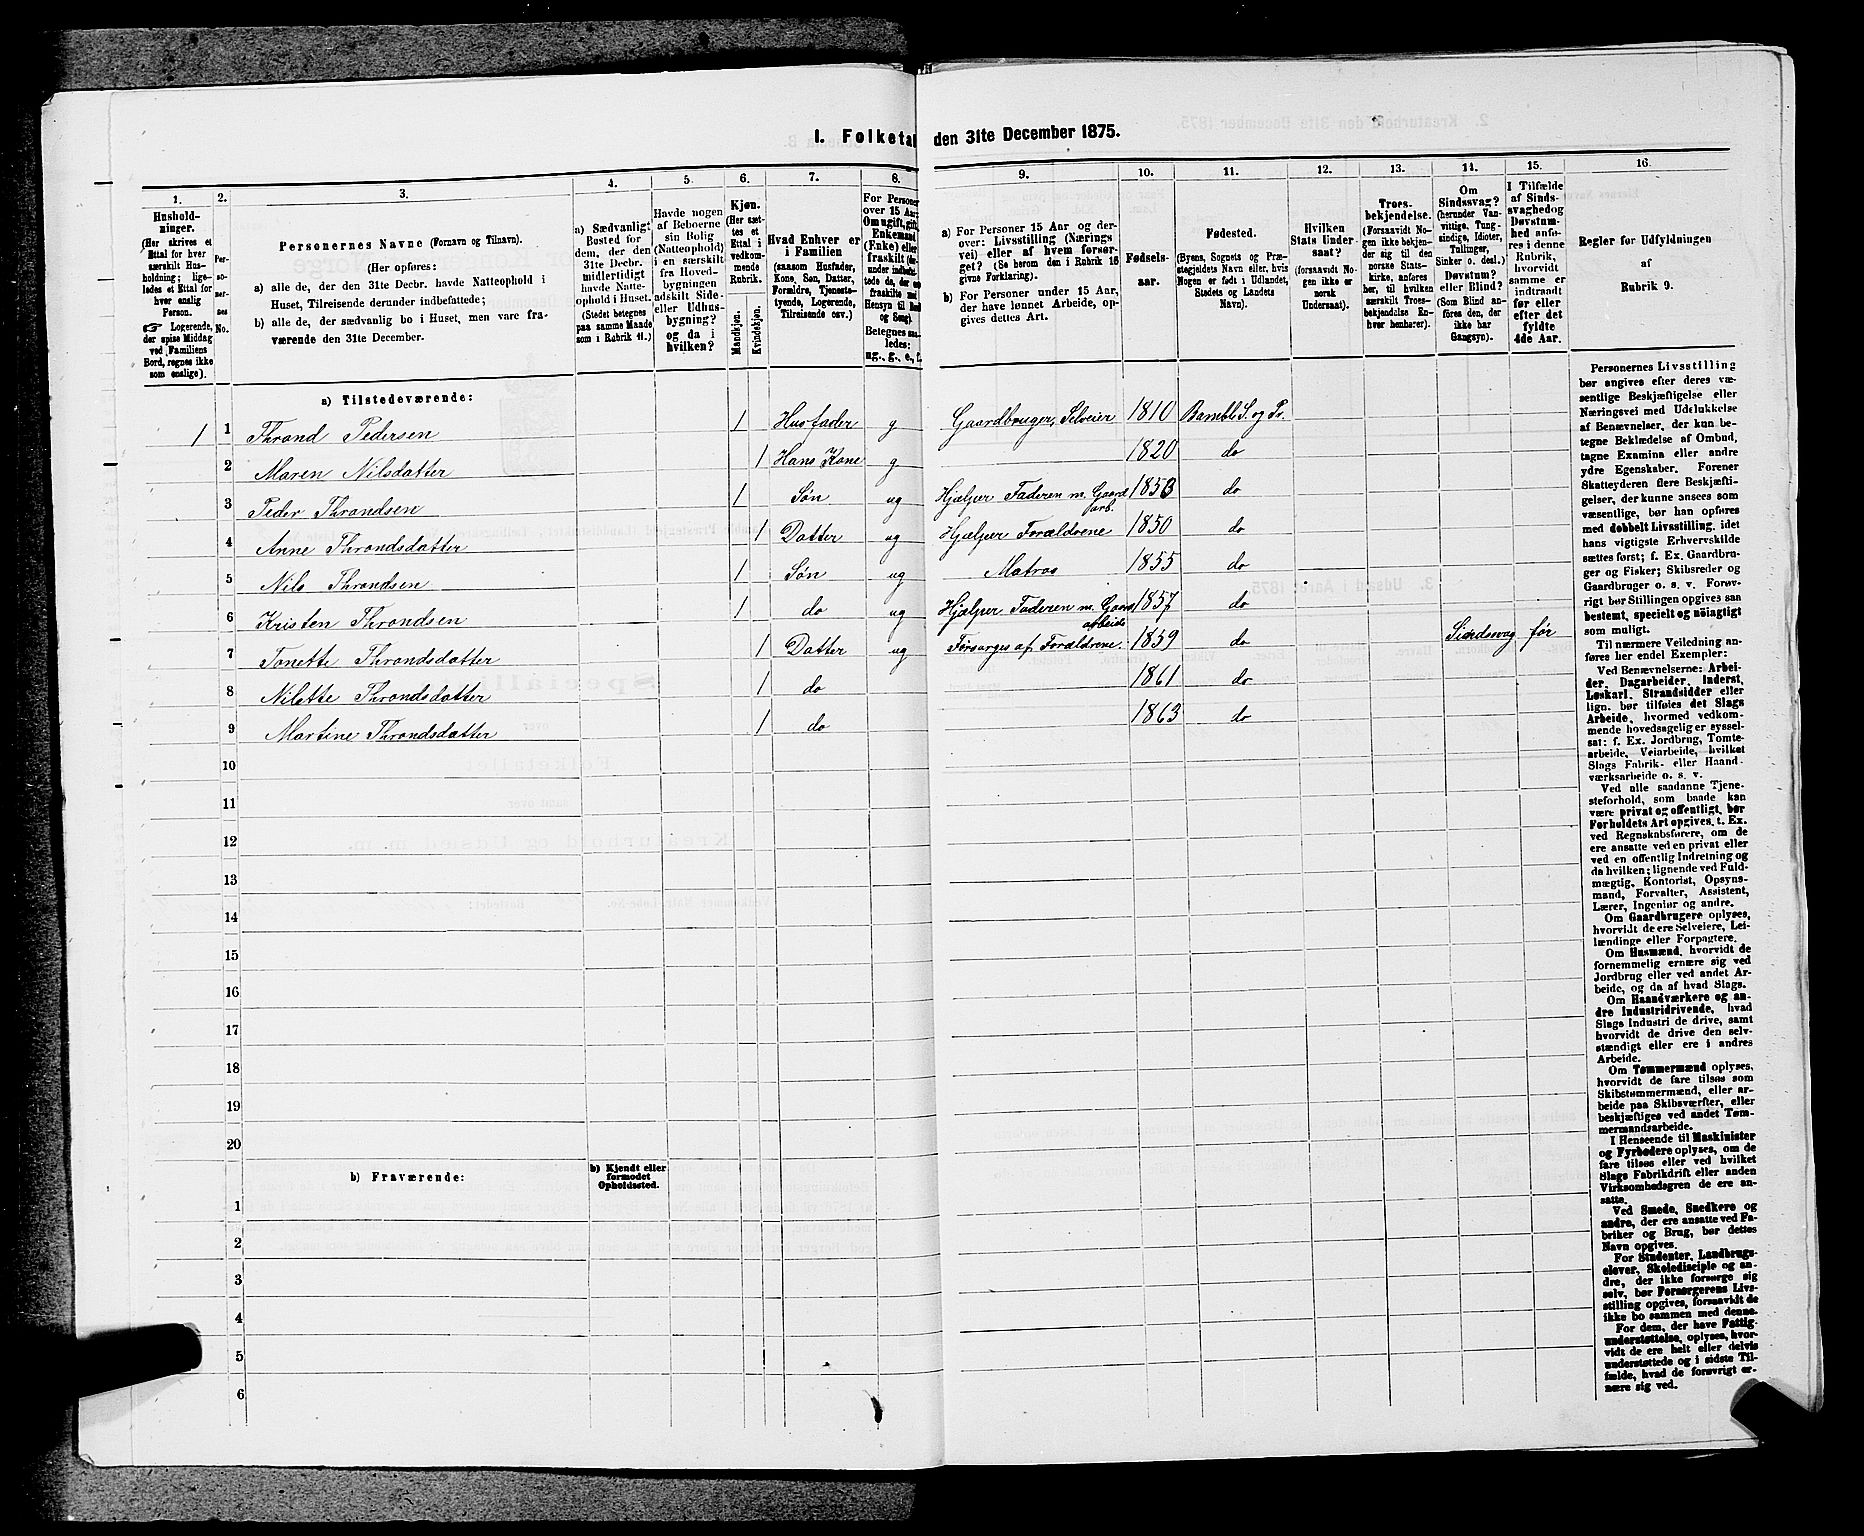 I. Folketal den 31te December 1875.
1.
2.
3.
4.
5.
6.
7.
8.
9.
10.
11.
12.
13.
14.
15.
16.
Hushold-
ninger.
(Her skrives et
Ettal for hver
særskilt Hus-
holdning; lige-
ledes et Ettal for
hver enslig
Person.
☞ Logerende,
der spise Middag
ved Familiens
Bord, regnes ikke
som enslige).
Per-
so-
ner-
nes
No.
Personernes Navne (Fornavn og Tilnavn).
(Her opføres:
a) alle de, der den 31te Decbr. havde Natteophold i
Huset, Tilreisende derunder indbefattede;
b) alle de, der sædvanlig bo i Huset, men vare fra-
værende den 31te December.
a) Sædvanligt
Bosted for
dem, der den
31te Decbr.
midlertidigt
havde Natte-
ophold i Huset.
(Stedet betegnes
paa samme Maade
som i Rubrik 11.)
Havde nogen
af Beboerne
sin Bolig
(Natteophold)
i en særskilt
fra Hoved-
bygningen
adskilt Side-
eller Udhus-
bygning?
og da i
hvilken?
Kjøn.
(Her sæt-
tes et
Ettal i
vedkom-
mende
Rubrik.
Mandkjøn.
Kvindekjøn.
Hvad Enhver er
i Familien
(saasom Husfader,
Kone, Søn, Datter,
Forældre, Tjeneste-
tyende, Logerende,
Tilreisende osv.)
For Personer
over 15 Aar:
Om ugift, gift,
Enkemand
(Enke) eller
fraskilt
Betegnes saa-
ledes:
ug., g., e., f.
a) For Personer 15 Aar og der-
over: Livsstilling (Nærings-
vei) eller af hvem forsør-
get? (Se herom den i Rubrik 16
givne Forklaring).
b) For Personer under 15 Aar,
der have lønnet Arbeide, op-
gives dettes Art.
Fødsels-
aar.
Fødested.
(Byens, Sognets og Præ-
stegjeldets Navn eller, hvis
Nogen er født i Udlandet,
Stedets og Landets
Navn).
Hvilken
Stats Under-
saat?
(forsaavidt No-
gen ikke er
norsk
Undersaat).
Troes-
bekjendelse.
(Forsaavidt No-
gen ikke bekjen-
der sig til den
norske Stats-
kirke, anføres
her, til hvilken
særskilt Troes-
bekjendelse En-
hver henhører).
Om
Sindssvag?
(herunder Van-
vittige, Tung-
sindige, Idioter,
Tullinger,
Sinker o. desl.)
Døvstum?
eller Blind?
(Som Blind an-
føres den, der
ikke har
Gangsyn).
I Tilfælde
af Sinds-
svaghed og
Døvstum-
hed anfø-
res i denne
Rubrik,
hvorvidt
samme er
indtraadt
før eller
efter det
fyldte
4de Aar.
Regler for Udfyldningen
af
Rubrik 9.
a) Tilstedeværende:
1 1 Thrond Pedersen 1 Husfader g Gaardbruger, Selveier 1810 Bamble S. og Pr.
2 Maren Nilsdatter 1 Hans Kone g 1820 do
3 Peder Throndsen 1 Søn ug Hjælper Faderen m. Gaards 1853 do
arb.
4 Anne Throndsdatter 1 Datter ug Hjælper Forældrene 1850 do
5 Nils Throndsen 1 Søn ug Matros 1855 do
6 Kristen Throndsen 1 do ug Hjælper Faderen m. Gaards 1857 do
arbeide
7 Tonette Throndsdatter 1 Datter ug Forsørges af Forældrene. 1859 do Sindssvag før
8 Nilette Throndsdatter 1 do 1861 do
9 Martine Throndsdatter 1 do 1863 do
10
11
12
13
14
15
16
17
18
19
20
b) Fraværende:
b) Kjendt eller
formodet
Opholdssted.
1
2
3
4
5
6
Personernes Livsstilling
bør angives efter deres væ-
sentlige Beskjæftigelse eller
Næringsvei med Udelukkelse
af Benævnelser, der kun be-
tegne Beklædelse af Ombud,
tagne Examina eller andre
ydre Egenskaber. Forener
Skatteyderen flere Beskjæfti-
gelser, der kunne ansees som
væsentlige, bør han opføres
med dobbelt Livsstilling, idet
hans vigtigste Erhvervskilde
sættes først; f. Ex. Gaardbru-
ger og Fisker; Skibsreder og
Gaardbruger o. s. v. Forøv-
rigt bør Stillingen opgives saa
bestemt, specielt og nøiagtigt
som muligt.
Til nærmere Veiledning an-
føres her endel Exempler:
Ved Benævnelserne: Arbei-
der, Dagarbeider, Inderst,
Løskarl, Strandsidder eller
lign. bør tilføies det Slags
Arbeide, hvormed vedkom-
mende hovedsagelig er syssel-
sat: f. Ex. Jordbrug, Tomte-
arbeide, Veiarbeide, hvilket
Slags Fabrik- eller Haand-
værksarbeide o. s. v.
Ved alle saadanne Tjene-
steforhold, som baade kan
være privat og offentligt, bør
Forholdets Art opgives, t. Ex.
ved Regnskabsførere, om de
ere ansatte ved en privat eller
ved en offentlig Indretning og
da hvilken; lignende ved Fuld-
mægtig, Kontorist, Opsyns-
mand, Forvalter, Assistent,
Lærer, Ingeniør og andre.
Om Gaardbrugere oplyses,
hvorvidt de ere Selveiere, Lei-
lændinge eller Forpagtere.
Om Husmænd, hvorvidt de
fornemmelig ernære sig ved
Jordbrug eller ved andet Ar-
beide, og da af hvad Slags.
Om Haandværkere og an-
dre Industridrivende, hvad
Slags Industri de drive, samt
hvorvidt de drive den selv-
stændigt eller ere i andres
Arbeide.
Om Tømmermænd oplyses,
hvorvidt de fare tilsøs som
Skibstømmermænd, eller ar-
beide paa Skibsværfter, eller
beskjæftiges ved andet Tøm-
mermandsarbeide.
I Henseende til Maskinister
og Fyrbødere oplyses, om de
fare tilsøs eller ved hvilket
Slags Fabrikdrift eller anden
Virksomhedsgren de ere an-
satte.
Ved Smede, Snedkere og
andre, der ere ansatte ved Fa-
briker og Brug, bør dettes
Navn opgives.
For Studenter, Landbrugs-
elever, Skoledisciple og an-
dre, der ikke forsørge sig
selv, bør Forsørgerens Livs-
stilling opgives, forsaavidt de
ikke bo sammen med denne.
For dem, der have Fattig-
understøttelse, oplyses, hvor-
vidt de ere helt eller delvis
understøttede og i sidste Til-
fælde, hvad de forøvrigt er-
nære sig ved.